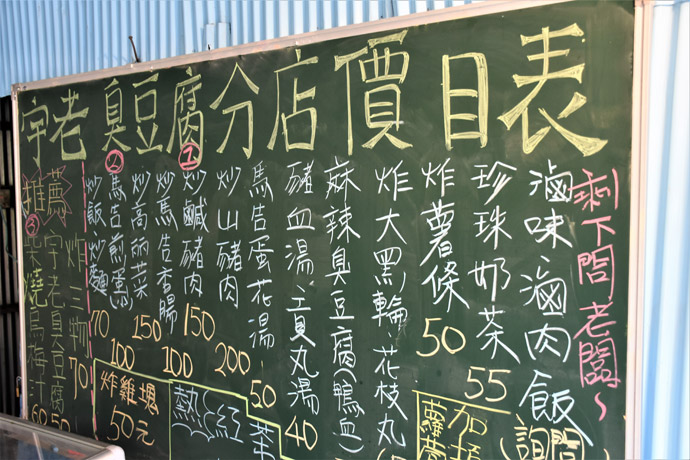 宇老臭豆腐分店價目表
推薦
①
②
③
柴燒烏梅汁 60
宇老臭豆腐 60
炸三物 70
炒飯炒麵 70
馬告煎蛋 100
炒高麗菜 150
炒馬告香腸 100
炒鹹豬肉 150
炒山豬肉 200
馬告蛋花湯 50
豬血湯、貢丸湯 40
麻辣臭豆腐(鴨血)
炸大黑輪、花枝丸
炸薯條 50
珍珠奶茶 55
滷味滷肉飯(詢問
剩下問老闆~
炸雞塊
50元
熱紅茶
加